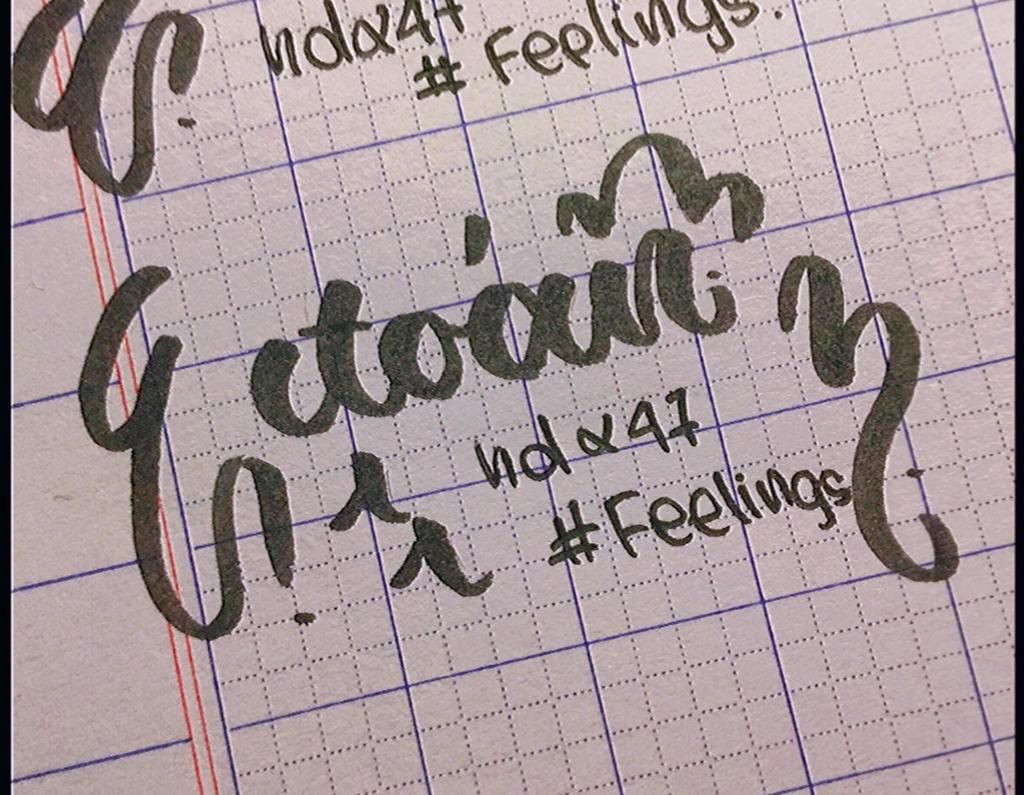 ndα47
# Feelings.
toán
ndα47
#Feelings